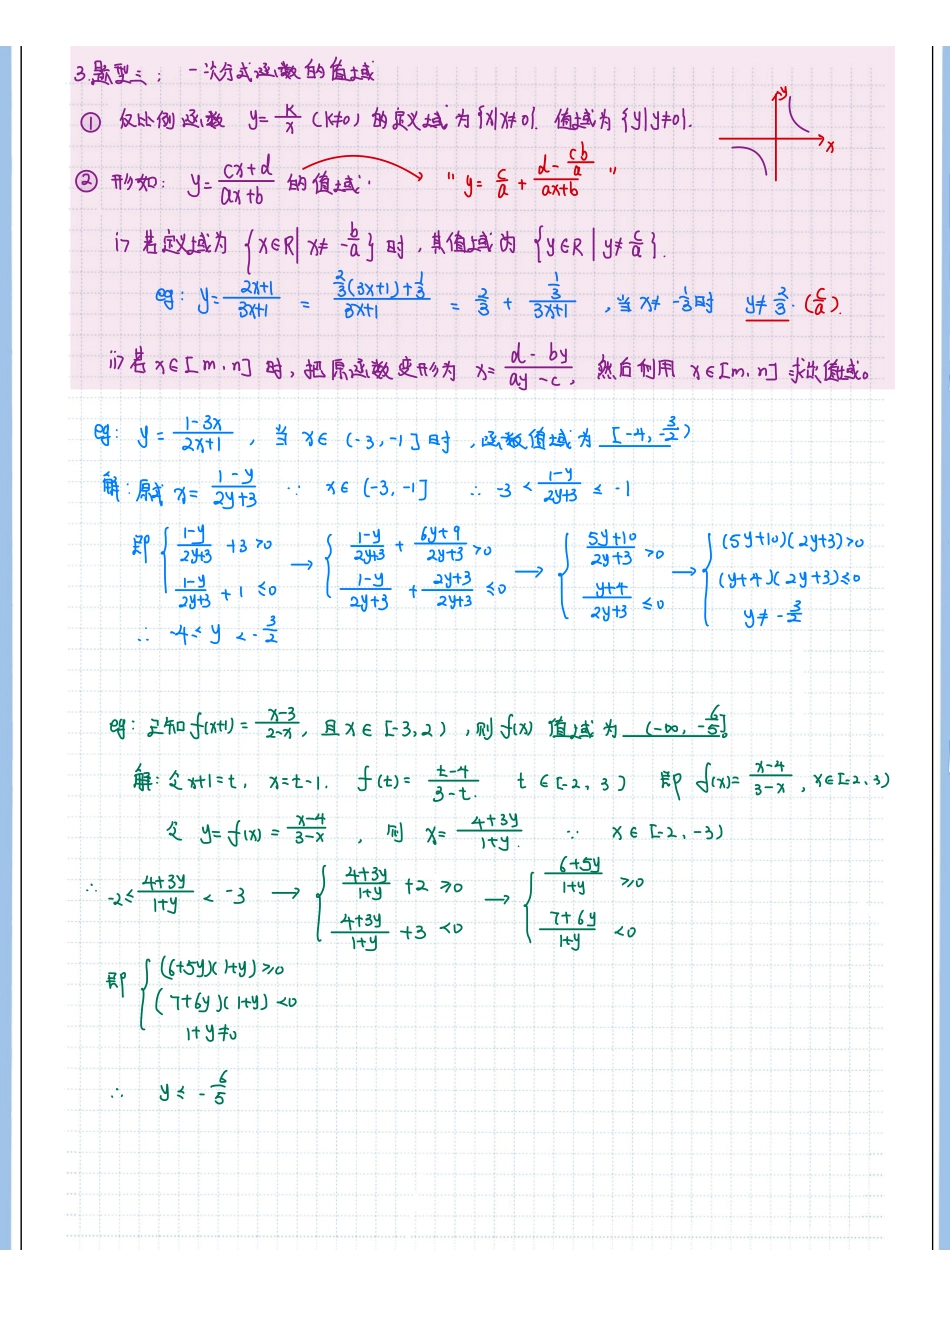 3.题型三：一次分式函数的值域
① 反比例函数 y=k/x (k≠0) 的定义域为{x|x≠0}. 值域为{y|y≠0}.
y
x
② 形如：y=(cx+d)/(ax+b) 的值域. " y=c/a+(d-cb/a)/(ax+b) "
i> 若定义域为{x∈R|x≠-b/a}时，其值域为{y∈R|y≠c/a}.
eg: y=(2x+1)/(3x+1) = (2/3(3x+1)+1/3)/(3x+1) = 2/3 + (1/3)/(3x+1) ,当x≠-1/3时 y≠2/3. (c/a).
ii> 若x∈[m,n]时，把原函数变形为 x=(d-by)/(ay-c)，然后利用 x∈[m,n]求次值域。
eg: y=(1-3x)/(2x+1) ，当x∈(-3,-1]时，函数值域为 [-4,-3/2)
解：原式 x=(1-y)/(2y+3) ∵ x∈(-3,-1] ∴ -3<(1-y)/(2y+3)≤-1
即 { (1-y)/(2y+3)+3>0 → { (1-y)/(2y+3)+(6y+9)/(2y+3)>0 → { (5y+10)/(2y+3)>0 → { (5y+10)(2y+3)>0
(1-y)/(2y+3)+1≤0 (1-y)/(2y+3)+(2y+3)/(2y+3)≤0 (y+4)/(2y+3)≤0 (y+4)(2y+3)≤0
y≠-3/2
∴ -4≤y<-3/2
eg: 已知f(x+1)=(x-3)/(2-x)，且x∈[-3,2)，则f(x)值域为 (-∞,-6/5]。
解：令x+1=t, x=t-1. f(t)=(t-4)/(3-t). t∈[-2,3) 即 f(x)=(x-4)/(3-x)，x∈[-2,3)
令 y=f(x)=(x-4)/(3-x)，则 x=(4+3y)/(1+y). ∵ x∈[-2,-3)
∴ -2≤(4+3y)/(1+y)<-3 → { (4+3y)/(1+y)+2≥0 → { (6+5y)/(1+y)≥0
(4+3y)/(1+y)+3<0 (7+6y)/(1+y)<0
即 { (6+5y)(1+y)≥0
(7+6y)(1+y)<0
1+y≠0
∴ y≤-6/5